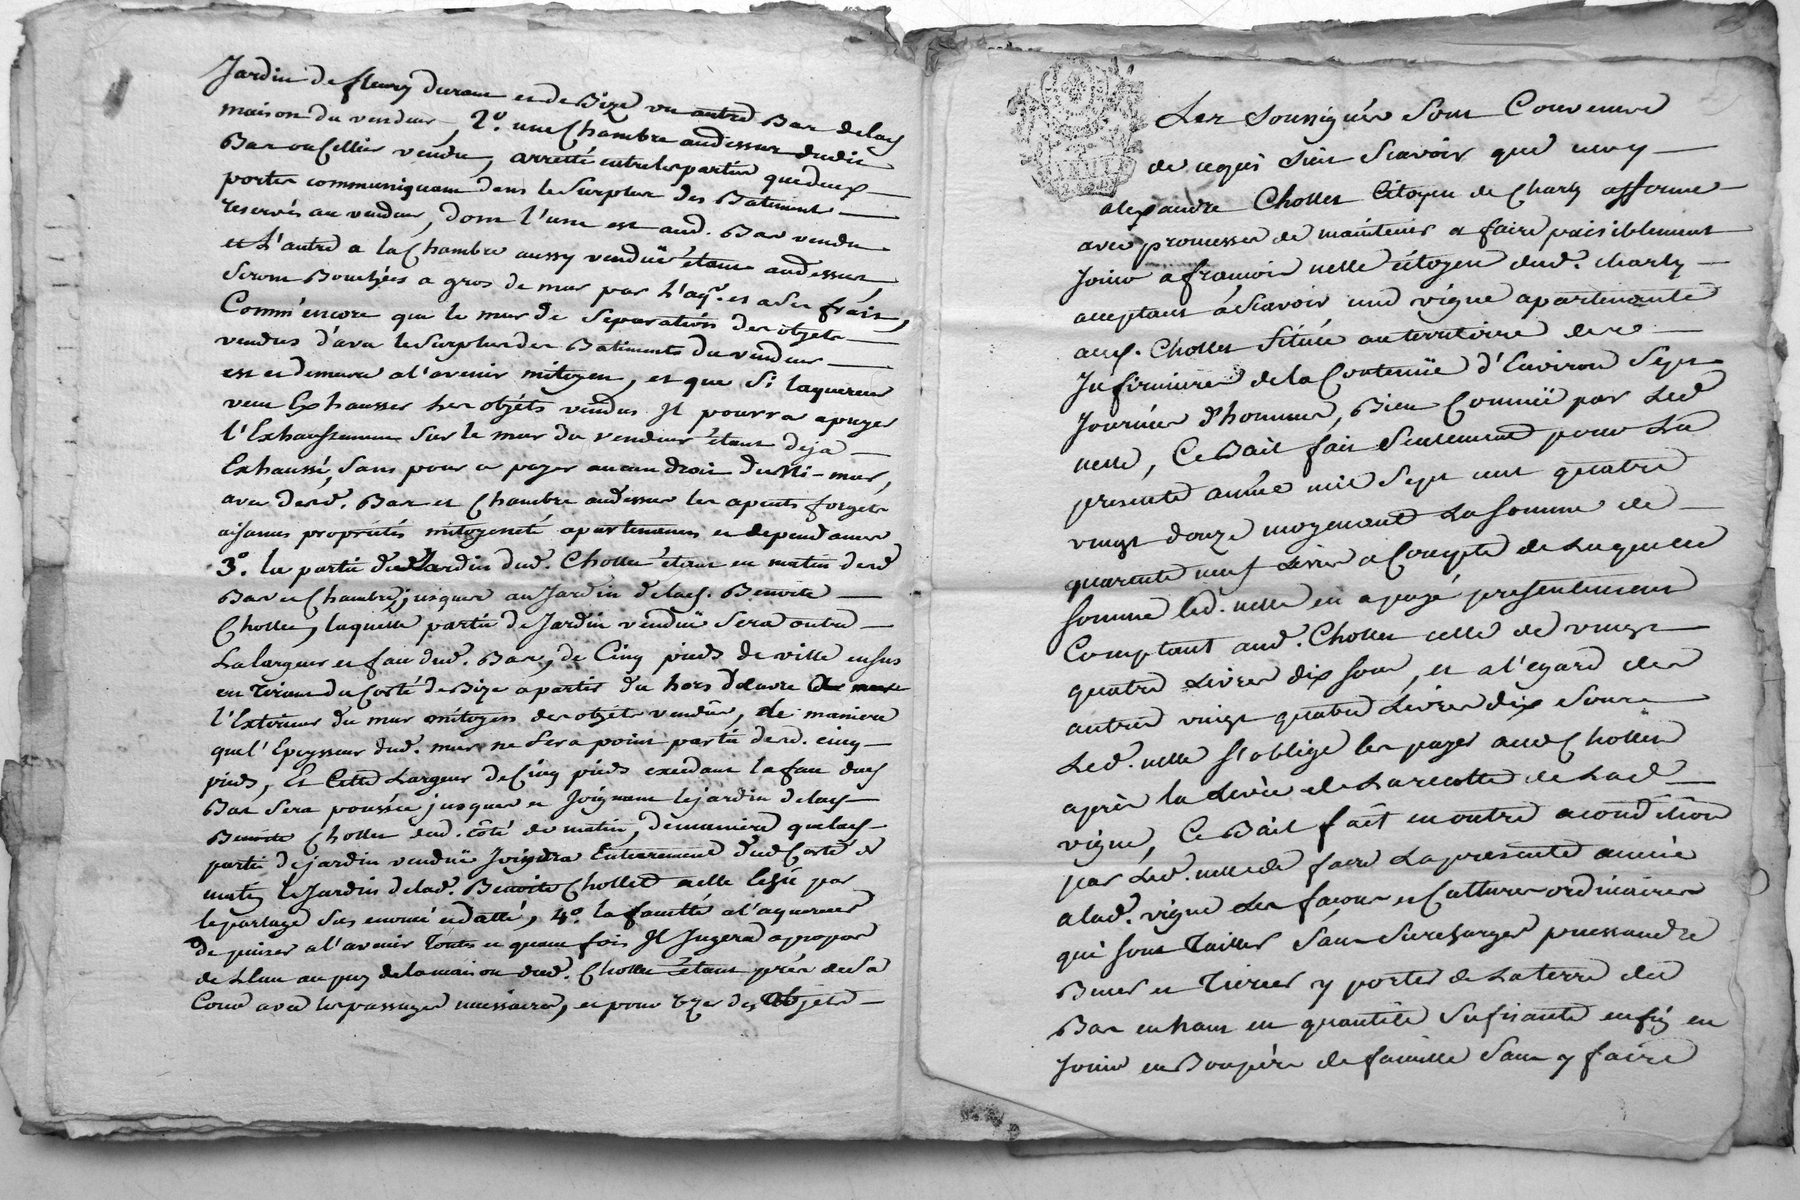 Jardin de fleury durant et de Bize un autre Bas delad
maison du vendeur, 2.° une Chambre audessus dudit
Bas ou Cellier vendu, arretté entre les parties que deux
portes communiquant dans le Surplus des Batiment
reservés au vendeur, dont l'une est aud. Bas vendu
et L'autre a la Chambre aussy venduë étant audessus
Seront Bouchées a gros de mur par L'aq.r et a Ses frais,
Comm'encore que le mur de Separation des objets
vendus d'avec le Surplus des Batiments du vendeur
est et demeure a l'avenir mitoyen, et que Si laquereur
veut Exhausser les objéts vendus Jl pourra apuyer
l'Exhaussement Sur le mur du vendeur étant deja
Exhaussé, Sans pour ce payer aucun droit de Mi-mur,
avec desd. Bas et Chambre audessus les apents forgéts
aisances proprietés mitoyeneté apartenances et dependances
3.° la partie du Jardin dud. Chollet étant en matin desd
Bas et Chambre, jusques au Jardin delad. Benoite
Chollet, laquelle partie de Jardin venduë Sera outre
La largeur et face dud. Bas, de Cinq pieds de ville ensus
en tirant du Costé de Bize a partir du hors d'œuvre
l'Exterieur du mur mitoyen des objets vendus, de maniere
que l'Epeysseur dud. mur ne Sera point partie desd. cinq
pieds, Et Cette Largeur de Cinq pieds excedant la face dud
Bas Sera poussée jusques et Joignant le jardin delad
Benoite Chollet dud. côté de matin, de maniere que lad
partie de jardin venduë Joindra Entierement dud Costé de
matin le Jardin delad. Benoite Chollet a elle
le partage Sus enoncé et datté, 4.° la faculté a l'aquereur
de puiser a l'avenir Toutes et quante fois Jl Jugera apropos
de L'eau au puy de la maison dud. Chollet étant près de Sa
Cour avec les passages necessaires, et pour des Objets
Les Soussignés Sont Convenus
de ce qui Suit Scavoir que moy
alexandre Chollet Citoyen de Charly afferme
avec promesse de maintenir et faire paisiblement
Jouir a francois nelle citoyen dud. charly
acceptant áScavoir une vigne apartenante
aud. Chollet Située au territoire des
Jnfirmieres de la Contenuë d'Environ Sept
Journées d'hommes, Bien Connuë par Led
nelle, Ce Bail fait Seulement pour La
presente année mil Sept cent quatre
vingt douze moyenant La Somme de
quarente neuf Livres a Compte de Laquelle
Somme led. nelle en a payé presentement
Comptant aud. Chollet celle de vingt
quatre Livres dix sous, et a l'egard des
autres vingt quatre Livres dix Sous
Led. nelle s'oblige les payer aud Chollet
après la Levée de La recolte de Lad
vigne, Ce Bail fait en outre acondition
par Led. nelle de faire La presente année
a lad. vigne Les façons et Cultures ordinaires
qui sont Tailler Sans Surcharger
Biner et Tiercer y porter de La terre du
Bas en haut en quantité Sufisante enfin en
Jouir en Bon père de famille Sans y faire